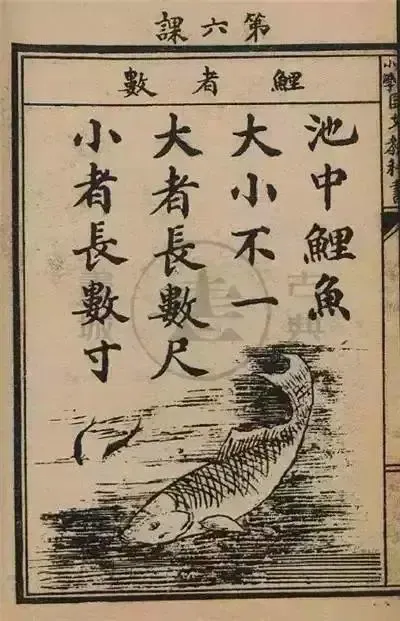 第六課
鯉者數
池中鯉魚
大小不一
大者長數尺
小者長數寸
小學國文教科書
古典